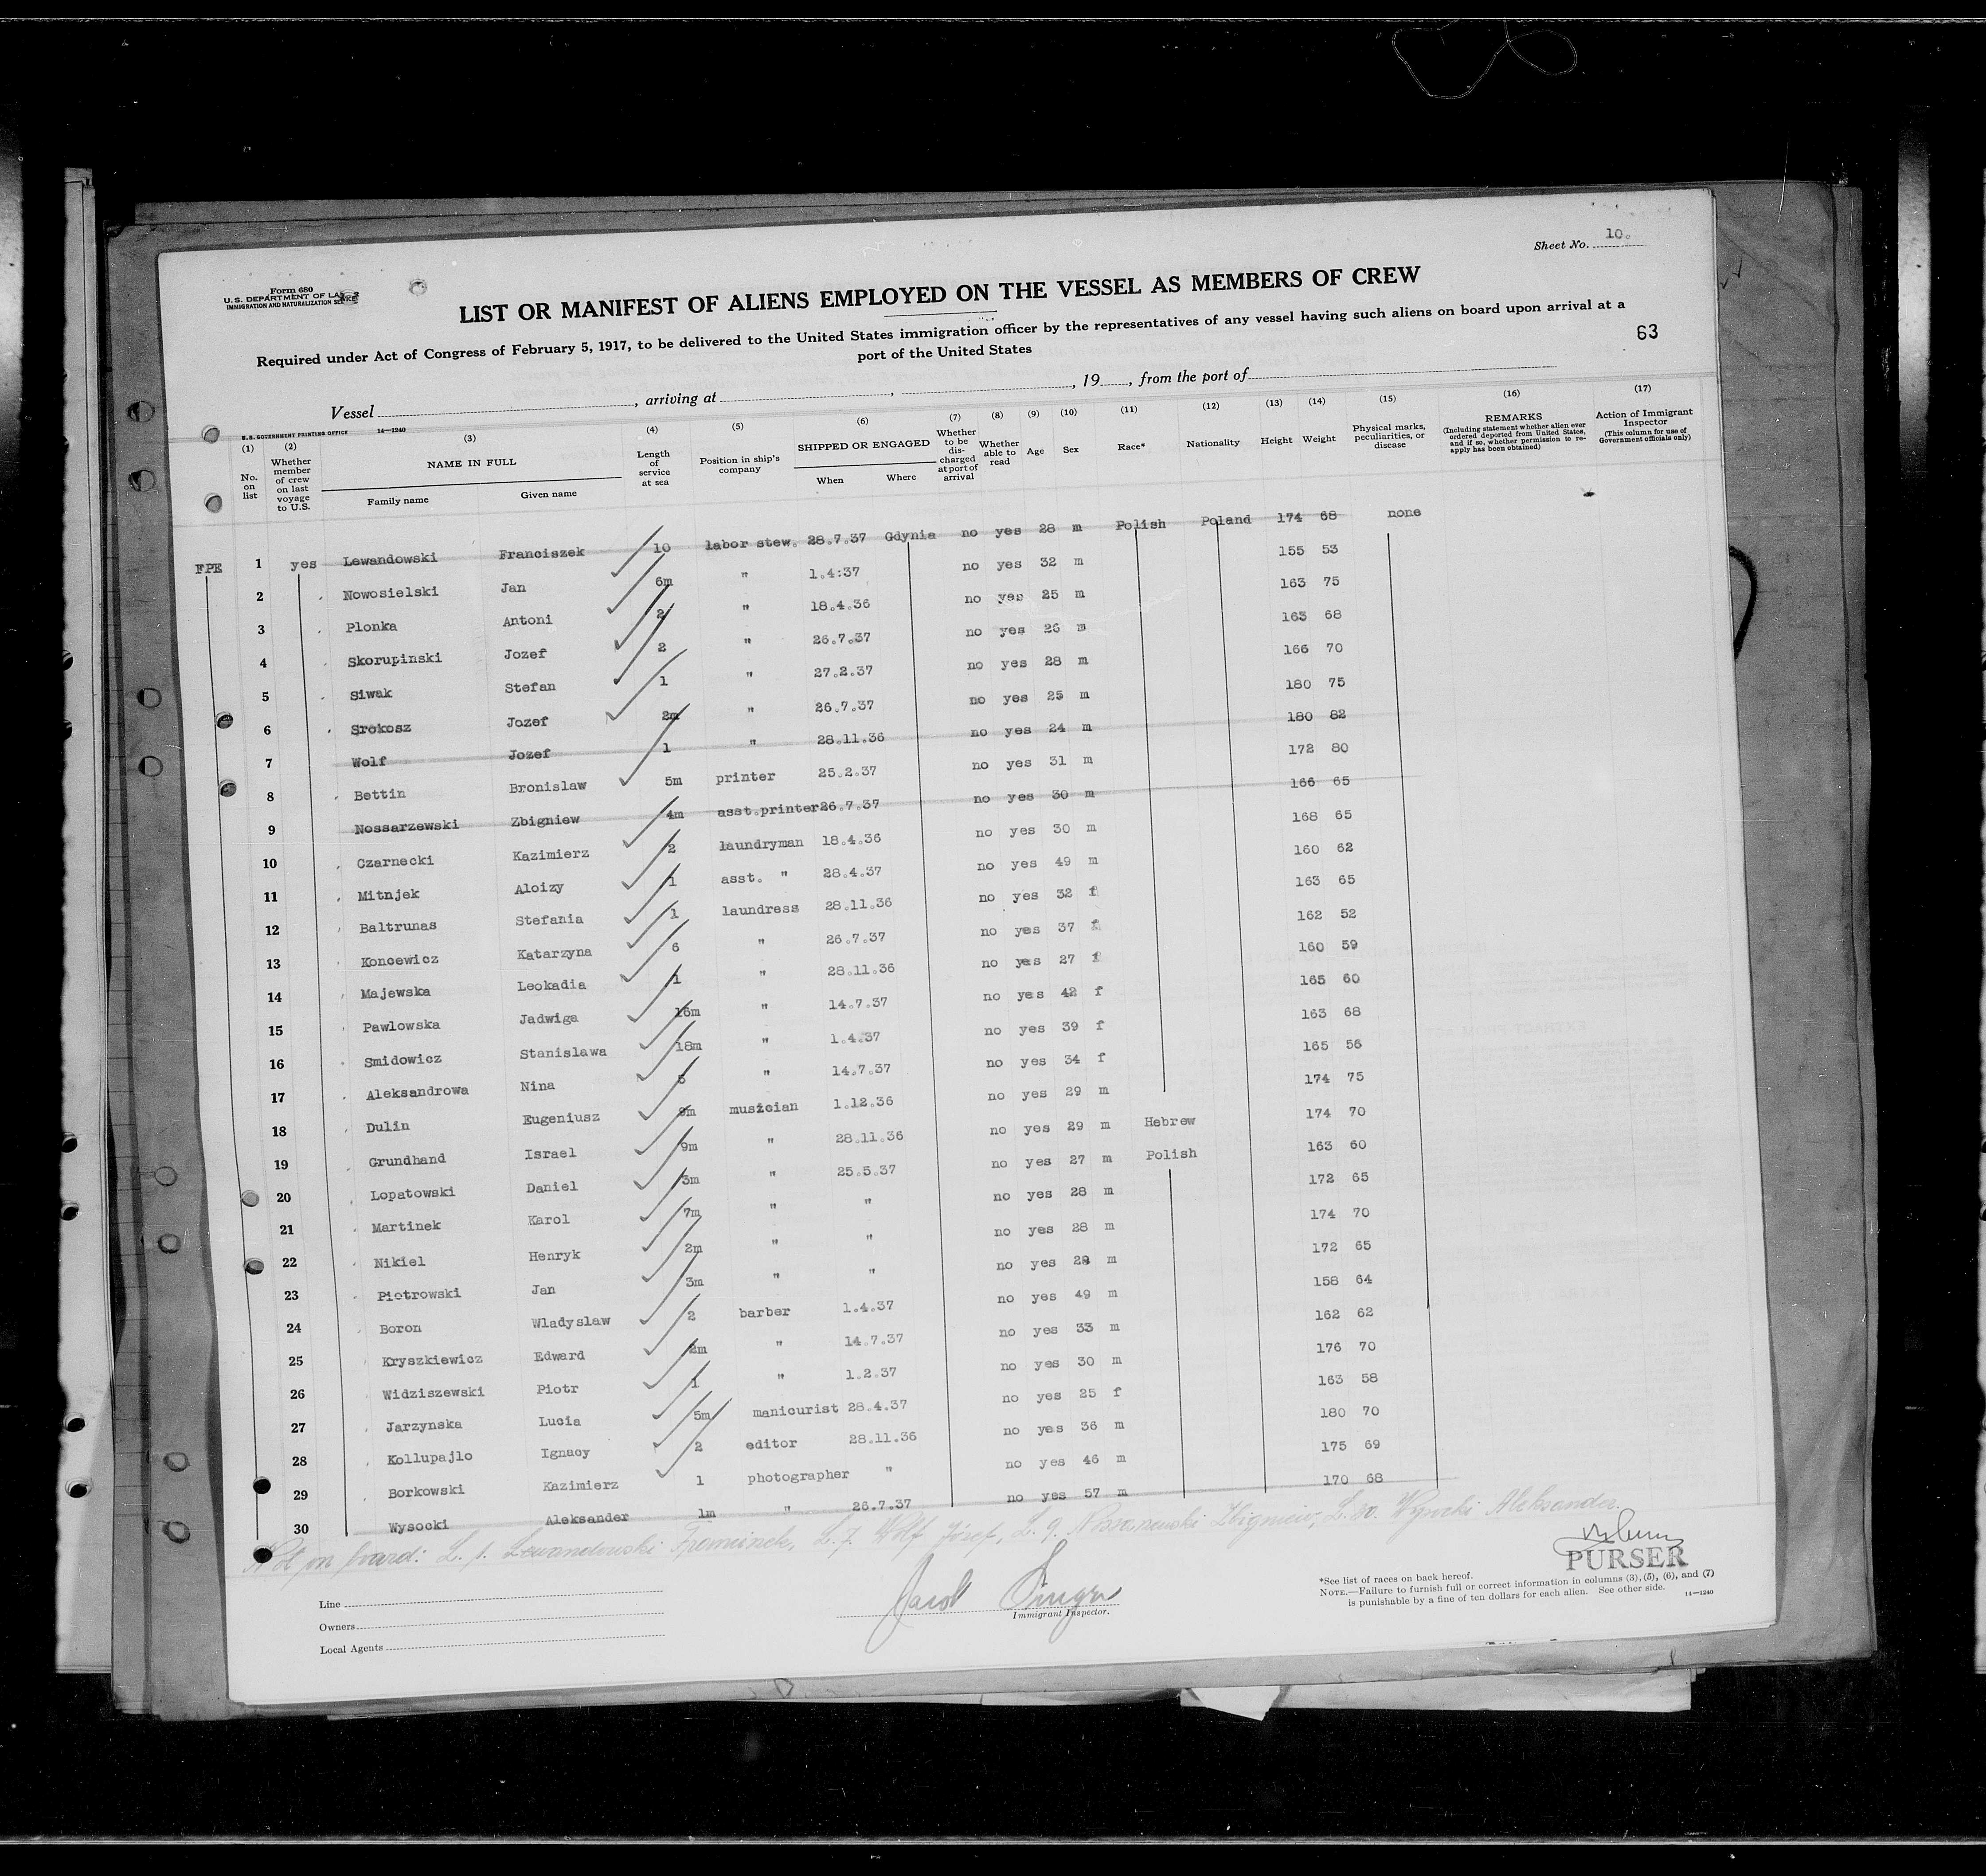 Sheet No. 10.
Form 680
U.S. DEPARTMENT OF LABOR
IMMIGRATION AND NATURALIZATION SERVICE
LIST OR MANIFEST OF ALIENS EMPLOYED ON THE VESSEL AS MEMBERS OF CREW
Required under Act of Congress of February 5, 1917, to be delivered to the United States immigration officer by the representatives of any vessel having such aliens on board upon arrival at a
port of the United States
63
Vessel , arriving at , , 19 , from the port of
U.S. GOVERNMENT PRINTING OFFICE 14—1240
(1) No. on list
(2) Whether member of crew on last voyage to U.S.
(3) NAME IN FULL Family name Given name
(4) Length of service at sea
(5) Position in ship's company
(6) SHIPPED OR ENGAGED When Where
(7) Whether to be discharged at port of arrival
(8) Whether able to read
(9) Age
(10) Sex
(11) Race*
(12) Nationality
(13) Height
(14) Weight
(15) Physical marks, peculiarities, or disease
(16) REMARKS (Including statement whether alien ever ordered deported from United States, and if so, whether permission to reapply has been obtained)
(17) Action of Immigrant Inspector (This column for use of Government officials only)
FPE 1 yes Lewandowski Franciszek 10 labor stew. 28.7.37 Gdynia no yes 28 m Polish Poland 174 68 none
2 Nowosielski Jan 6m " 1.4:37 no yes 32 m 155 53
3 Plonka Antoni 2 " 18.4.36 no yes 25 m 163 75
4 Skorupinski Jozef 2 " 26.7.37 no yes 26 m 163 68
5 Siwak Stefan 1 " 27.2.37 no yes 28 m 166 70
6 Srokosz Jozef 2m " 26.7.37 no yes 25 m 180 75
7 Wolf Jozef 1 " 28.11.36 no yes 24 m 180 82
8 Bettin Bronislaw 5m printer 25.2.37 no yes 31 m 172 80
9 Nossarzewski Zbigniew 4m asst.printer 26.7.37 no yes 30 m 166 65
10 Czarnecki Kazimierz 2 laundryman 18.4.36 no yes 30 m 168 65
11 Mitnjek Aloizy 1 asst. " 28.4.37 no yes 49 m 160 62
12 Baltrunas Stefania 1 laundress 28.11.36 no yes 32 f 163 65
13 Koncewicz Katarzyna 6 " 26.7.37 no yes 37 f 162 52
14 Majewska Leokadia 1 " 28.11.36 no yes 27 f 160 59
15 Pawlowska Jadwiga 16m " 14.7.37 no yes 42 f 165 60
16 Smidowicz Stanislawa 18m " 1.4.37 no yes 39 f 163 68
17 Aleksandrowa Nina 5 " 14.7.37 no yes 34 f 165 56
18 Dulin Eugeniusz 9m musician 1.12.36 no yes 29 m 174 75
19 Grundhand Israel 9m " 28.11.36 no yes 29 m Hebrew 174 70
20 Lopatowski Daniel 3m " 25.5.37 no yes 27 m Polish 163 60
21 Martinek Karol 7m " " no yes 28 m 172 65
22 Nikiel Henryk 2m " " no yes 28 m 174 70
23 Piotrowski Jan 3m " " no yes 28 m 172 65
24 Boron Wladyslaw 2 barber 1.4.37 no yes 49 m 158 64
25 Kryszkiewicz Edward 2m " 14.7.37 no yes 33 m 162 62
26 Widziszewski Piotr 1 " 1.2.37 no yes 30 m 176 70
27 Jarzynska Lucia 5m manicurist 28.4.37 no yes 25 f 163 58
28 Kollupajlo Ignacy 2 editor 28.11.36 no yes 36 m 180 70
29 Borkowski Kazimierz 1 photographer " no yes 46 m 175 69
30 Wysocki Aleksander 1m " 26.7.37 no yes 57 m 170 68
Not on board: L. 1. Lewandowski Franciszek, L. 7. Wolf Józef, L. 9. Nossarzewski Zbigniew, L. 30. Wysocki Aleksander.
PURSER
Line
Owners
Local Agents
Jacob
Immigrant Inspector.
*See list of races on back hereof.
NOTE.—Failure to furnish full or correct information in columns (3), (5), (6), and (7)
is punishable by a fine of ten dollars for each alien. See other side. 14—1240